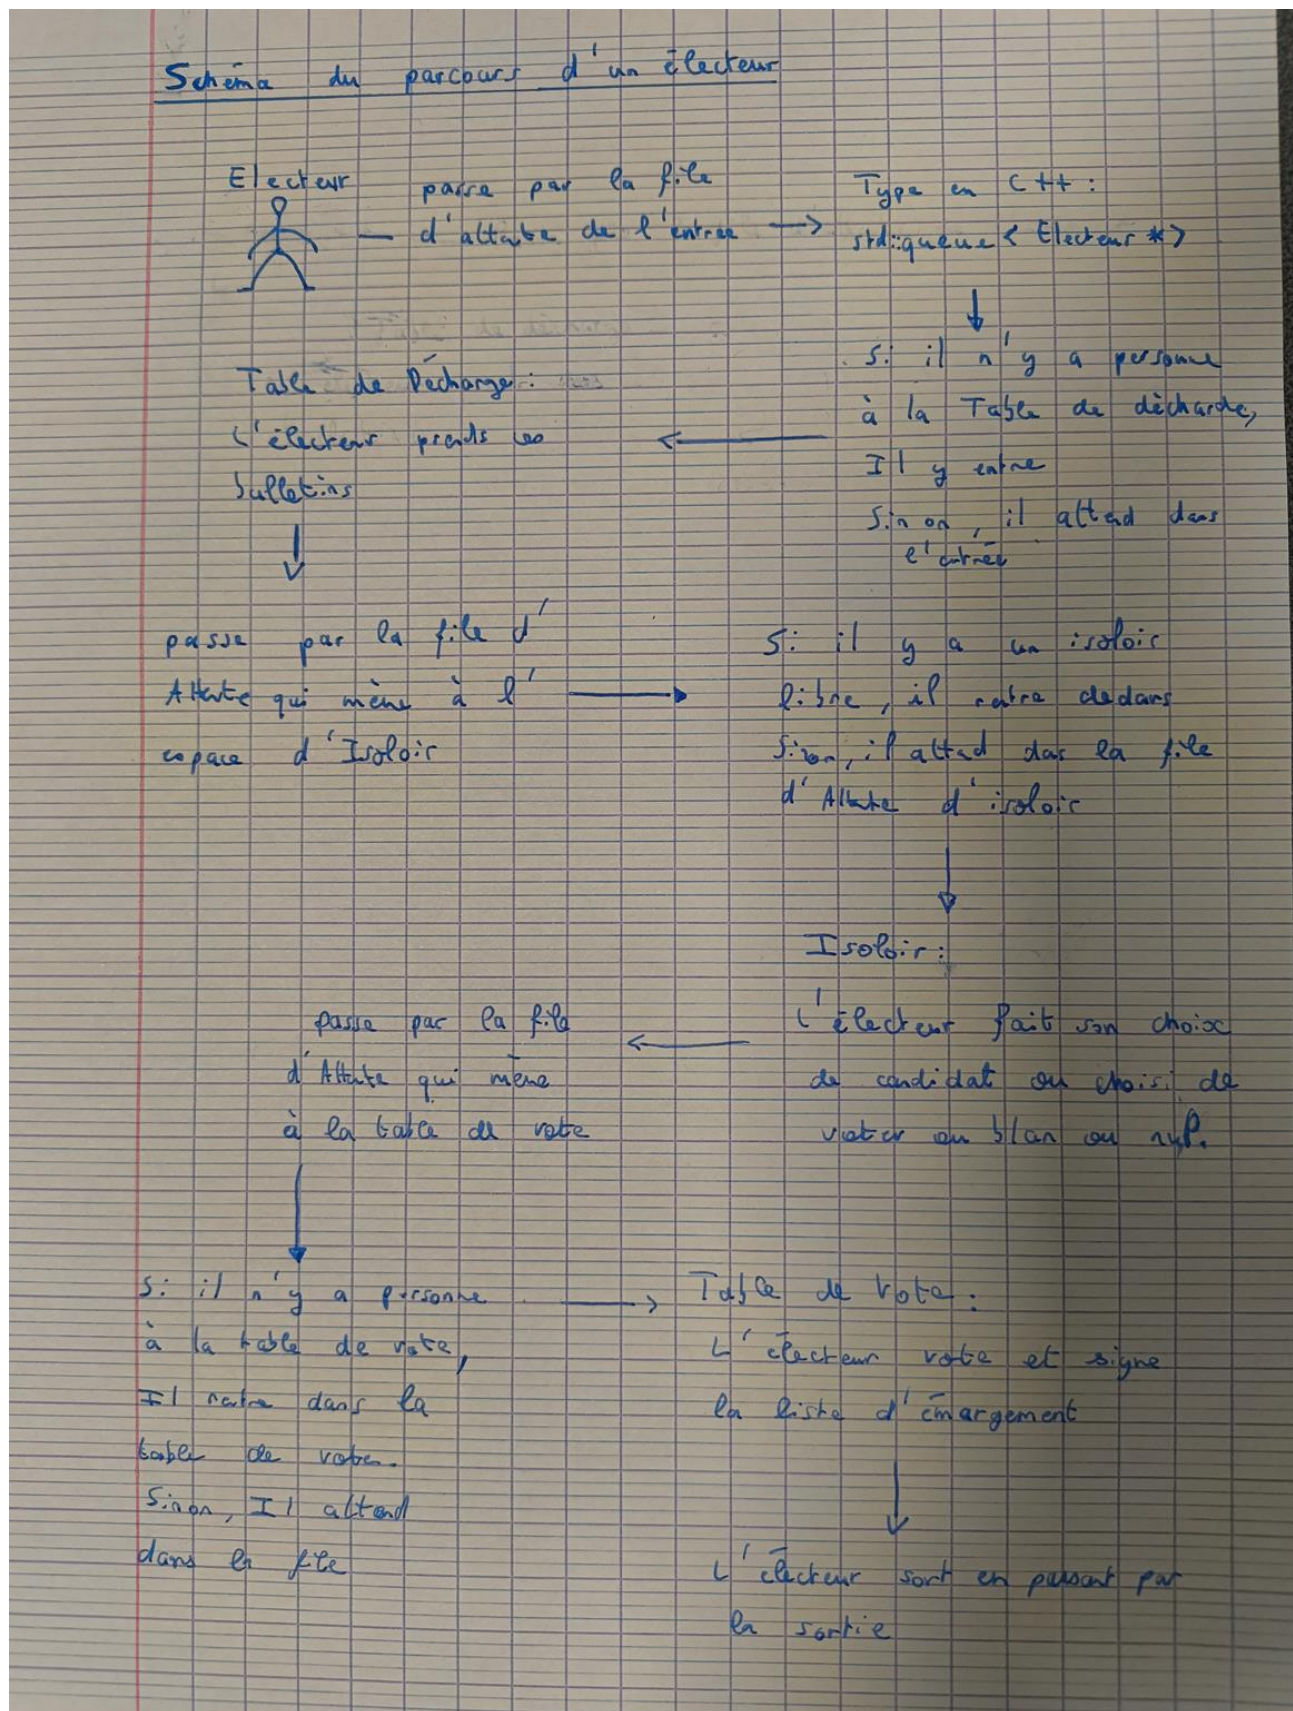 Schéma du parcours d'un électeur
Electeur
passe par la file
d'attente de l'entrée
Type en C++ :
std::queue < Electeur *>
Si il n'y a personne
à la Table de décharde,
Il y entre
Sinon, il attend dans
l'entrée
Table de Décharge :
L'électeur prends les
bulletins
passe par la file d'
Attente qui mène à l'
espace d'Isoloir
Si il y a un isoloir
libre, il rentre dedans
Sinon, il attend dans la file
d'Attente d'isoloir
Isoloir :
L'électeur fait son choix
de candidat ou choisi de
voter ou blan ou nul.
passe par la file
d'Attente qui mène
à la table de vote
Si il n'y a personne
à la table de vote,
Il rentre dans la
table de vote.
Sinon, Il attend
dans la file
Table de vote :
L'électeur vote et signe
la liste d'émargement
L'électeur sort en passant par
la sortie